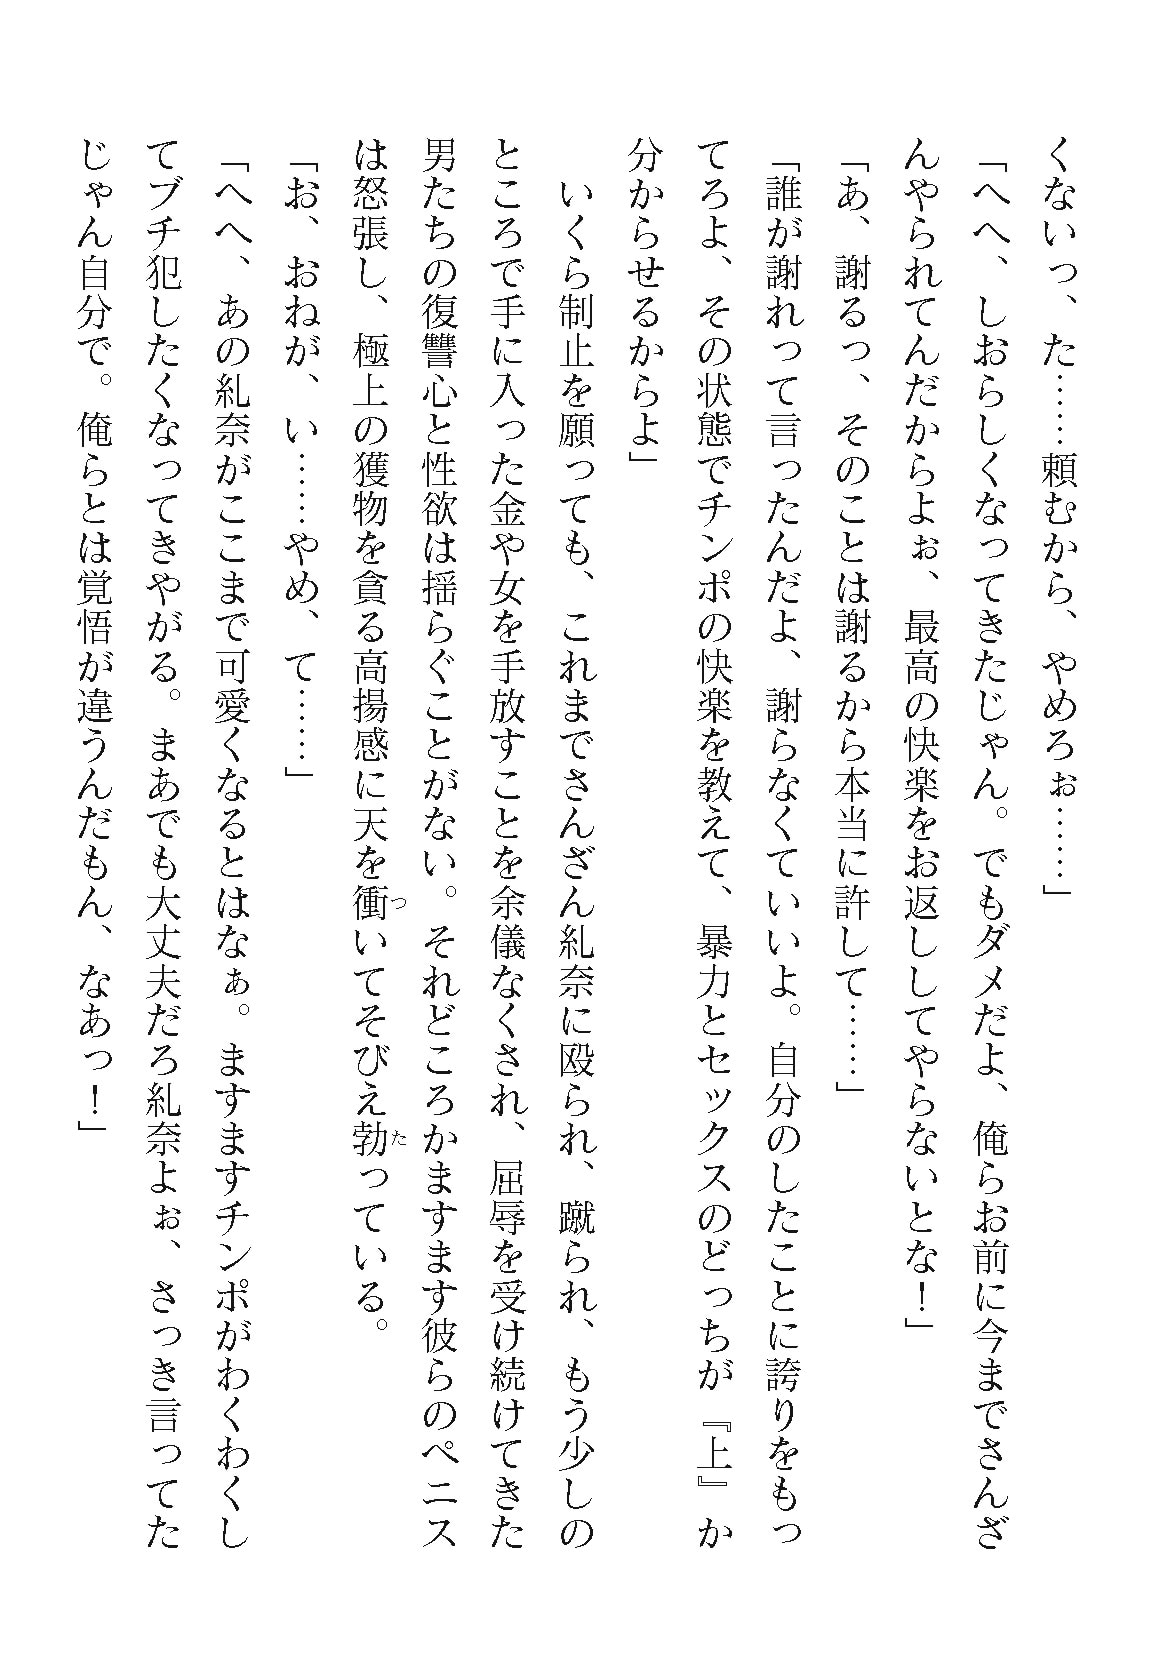 くないっ、た……頼むから、やめろぉ……」
「へへ、しおらしくなってきたじゃん。でもダメだよ、俺らお前に今までさんざ
んやられてんだからよぉ、最高の快楽をお返ししてやらないとな！」
「あ、謝るっ、そのことは謝るから本当に許して……」
「誰が謝れって言ったんだよ、謝らなくていいよ。自分のしたことに誇りをもっ
てろよ、その状態でチンポの快楽を教えて、暴力とセックスのどっちが『上』か
分からせるからよ」
　いくら制止を願っても、これまでさんざん糺奈に殴られ、蹴られ、もう少しの
ところで手に入った金や女を手放すことを余儀なくされ、屈辱を受け続けてきた
男たちの復讐心と性欲は揺らぐことがない。それどころかますます彼らのペニス
は怒張し、極上の獲物を貪る高揚感に天を衝いてそびえ勃っている。
「お、おねが、い……やめ、て……」
「へへ、あの糺奈がここまで可愛くなるとはなぁ。ますますチンポがわくわくし
てブチ犯したくなってきやがる。まあでも大丈夫だろ糺奈よぉ、さっき言ってた
じゃん自分で。俺らとは覚悟が違うんだもん、なあっ！」